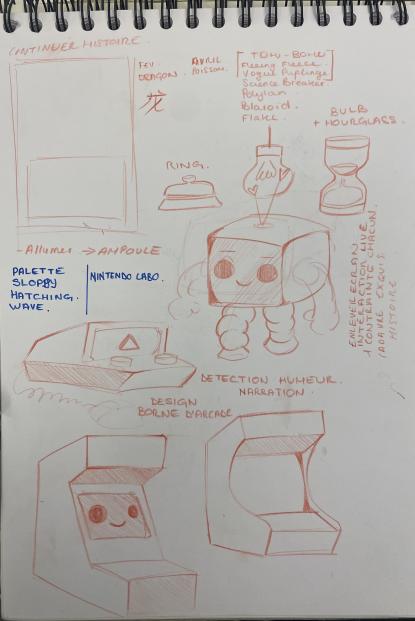 CONTINUER HISTOIRE.
FEV
DRAGON.
龙
AVRIL
POISSON.
Science Breaker.
Polylan
Blazoid.
Flake
BULB
+ HOURGLASS.
RING.
- Allumer → AMPOULE
PALETTE
SLOPPY
HATCHING.
WAVE.
NINTENDO LABO.
ENLEVER ECRAN
INTERACTION LIVE
1 CONTRAINTE CHACUN.
CADAVRE EXQUIS
HISTOIRE
DETECTION HUMEUR.
NARRATION.
DESIGN
BORNE D'ARCADE